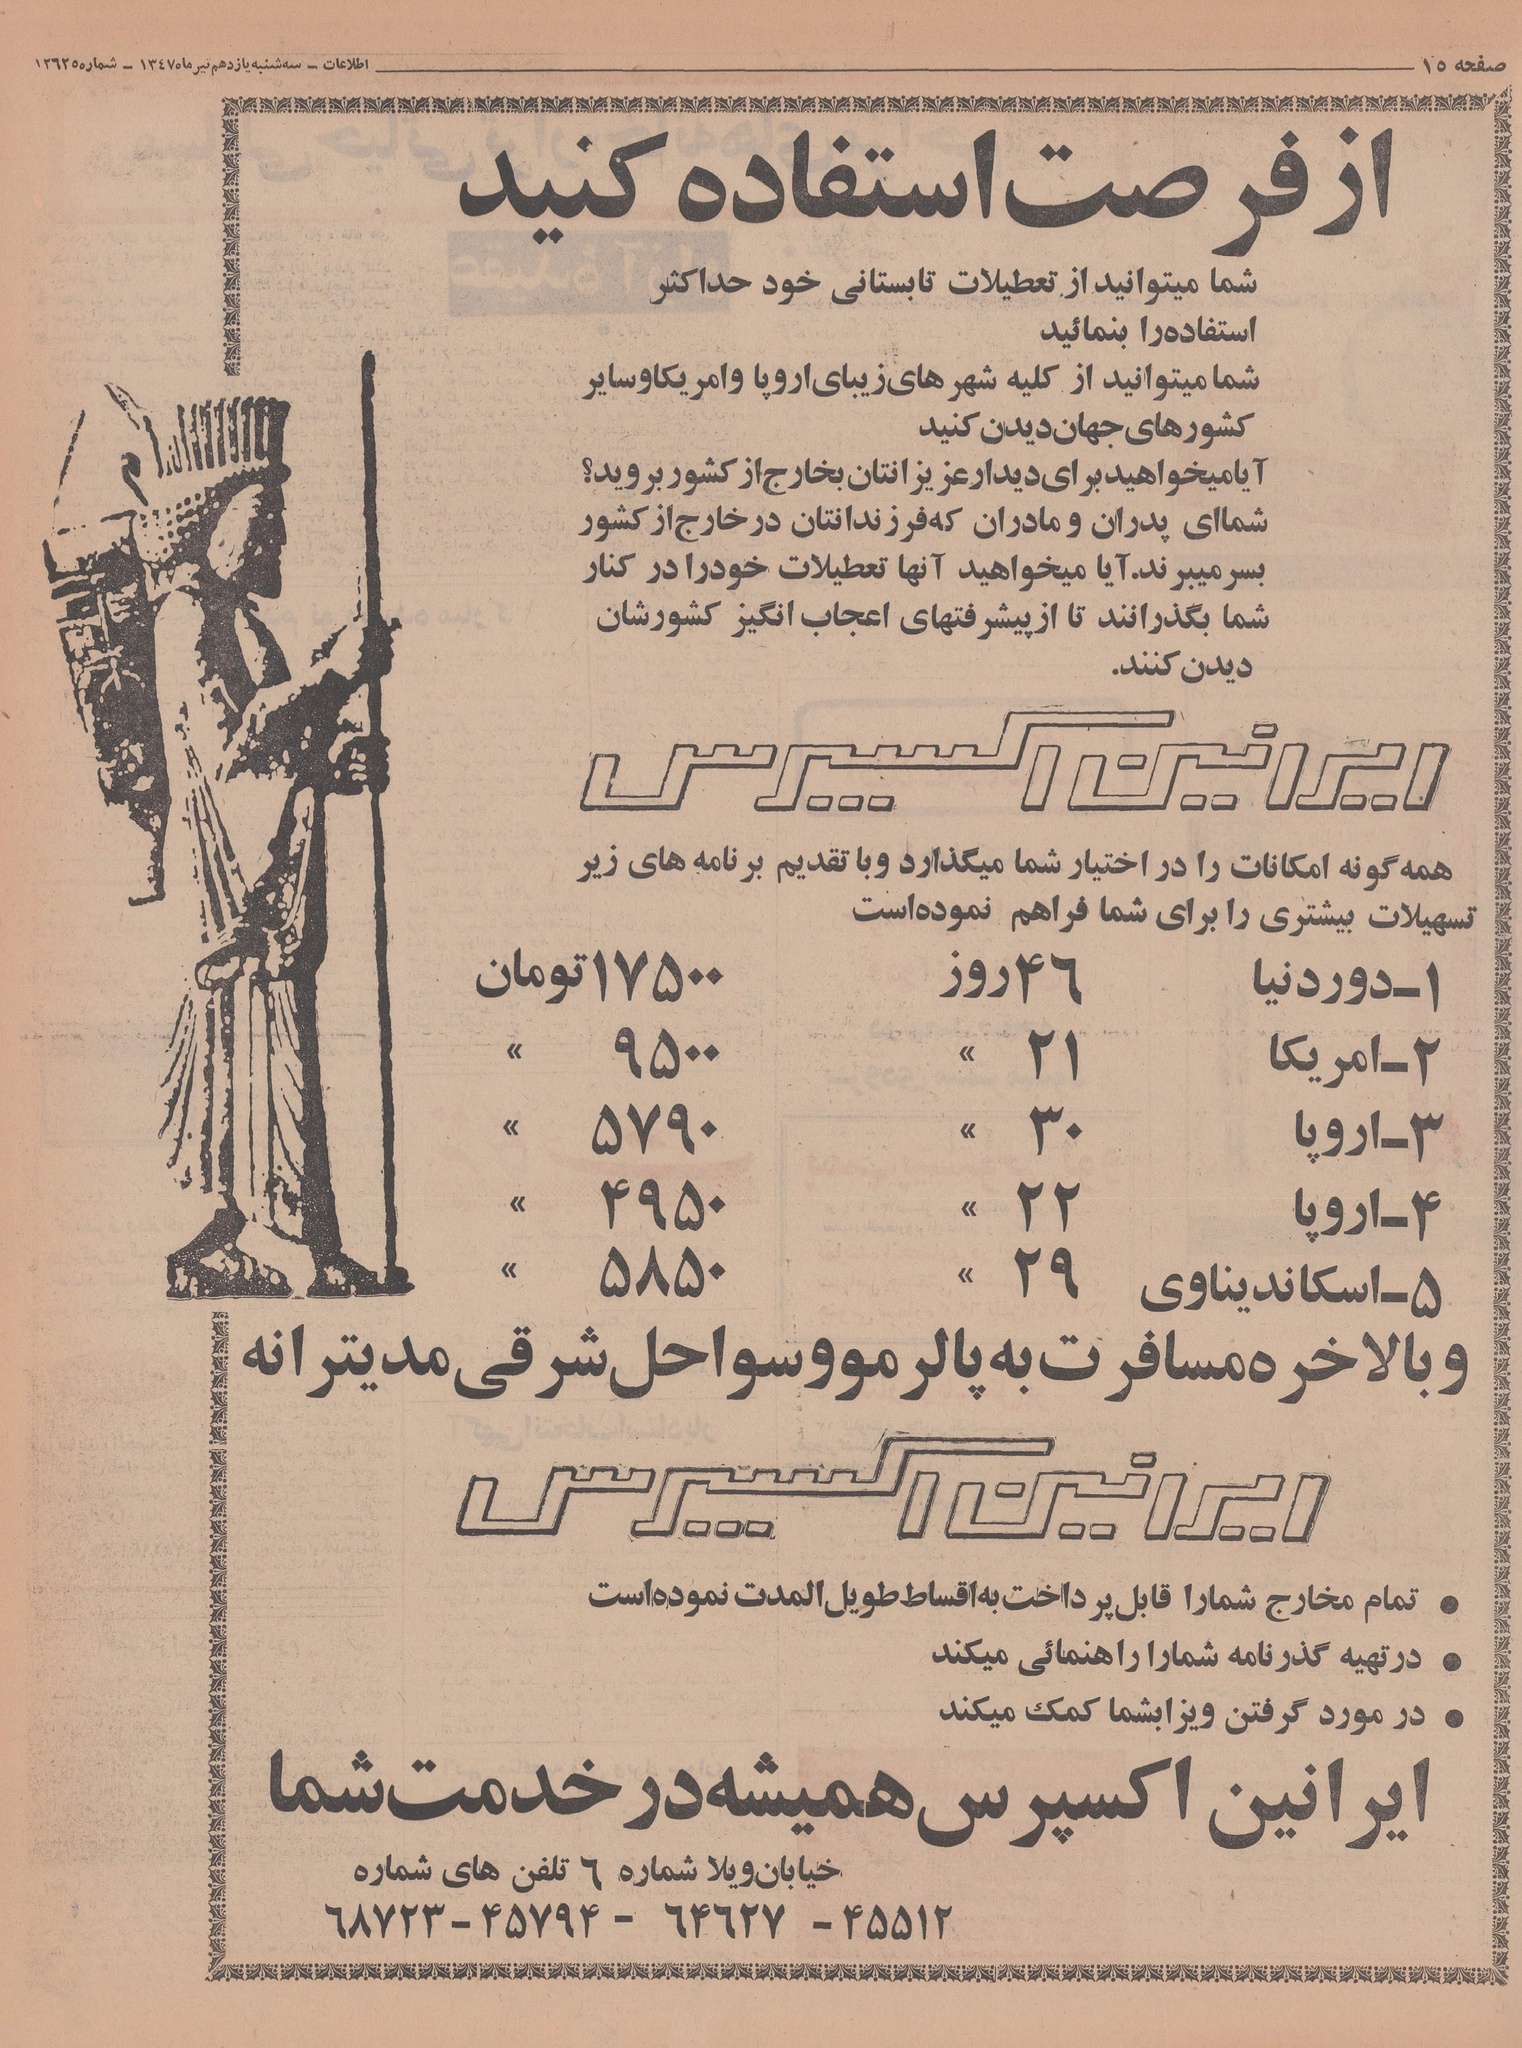 صفحه ۱۵
اطلاعات - سه‌شنبه یازدهم تیر ماه ۱۳۴۷ - شماره ۱۲۶۲۵
از فرصت استفاده کنید
شما میتوانید از تعطیلات تابستانی خود حداکثر
استفاده را بنمائید
شما میتوانید از کلیه شهرهای زیبای اروپا و امریکا و سایر
کشورهای جهان دیدن کنید
آیا میخواهید برای دیدار عزیزانتان بخارج از کشور بروید؟
شما ای پدران و مادران که فرزندانتان در خارج از کشور
بسر میبرند. آیا میخواهید آنها تعطیلات خود را در کنار
شما بگذرانند تا از پیشرفتهای اعجاب انگیز کشورشان
دیدن کنند.
ایرانین اکسپرس
همه گونه امکانات را در اختیار شما میگذارد و با تقدیم برنامه های زیر
تسهیلات بیشتری را برای شما فراهم نموده است
۱ـ دور دنیا ۴۶ روز ۱۷۵۰۰ تومان
۲ـ امریکا ۲۱ » ۹۵۰۰ »
۳ـ اروپا ۳۰ » ۵۷۹۰ »
۴ـ اروپا ۲۲ » ۴۹۵۰ »
۵ـ اسکاندیناوی ۲۹ » ۵۸۵۰ »
و بالاخره مسافرت به پالرمو و سواحل شرقی مدیترانه
ایرانین اکسپرس
● تمام مخارج شما را قابل پرداخت به اقساط طویل المدت نموده است
● در تهیه گذرنامه شما را راهنمائی میکند
● در مورد گرفتن ویزا بشما کمک میکند
ایرانین اکسپرس همیشه در خدمت شما
خیابان ویلا شماره ۶ تلفن های شماره
۴۵۵۱۲ - ۶۴۶۲۷ - ۴۵۷۹۴ - ۶۸۷۲۳